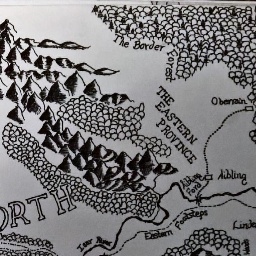 The Border
Forest
THE
EASTERN
PROVINCE
Obernain
Aibling
Ford
ORTH
Isar River
Eastern Footsteps
Linde